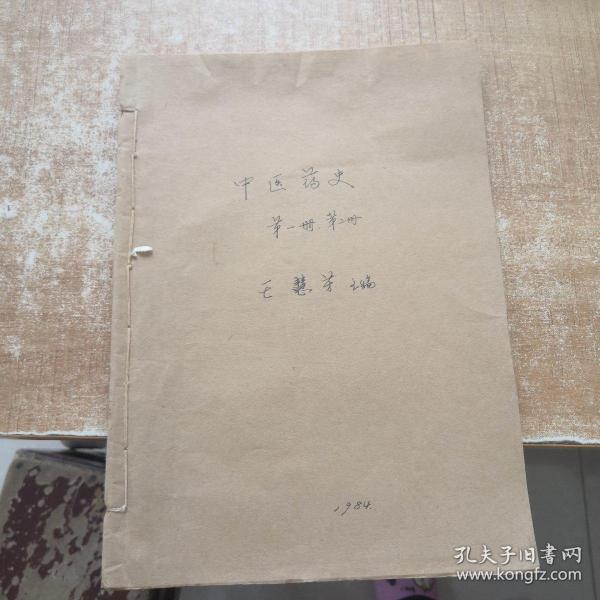 中医药史
第一册.第二册
王慧芳主编
1984.
孔夫子旧书网
www.kongfz.com